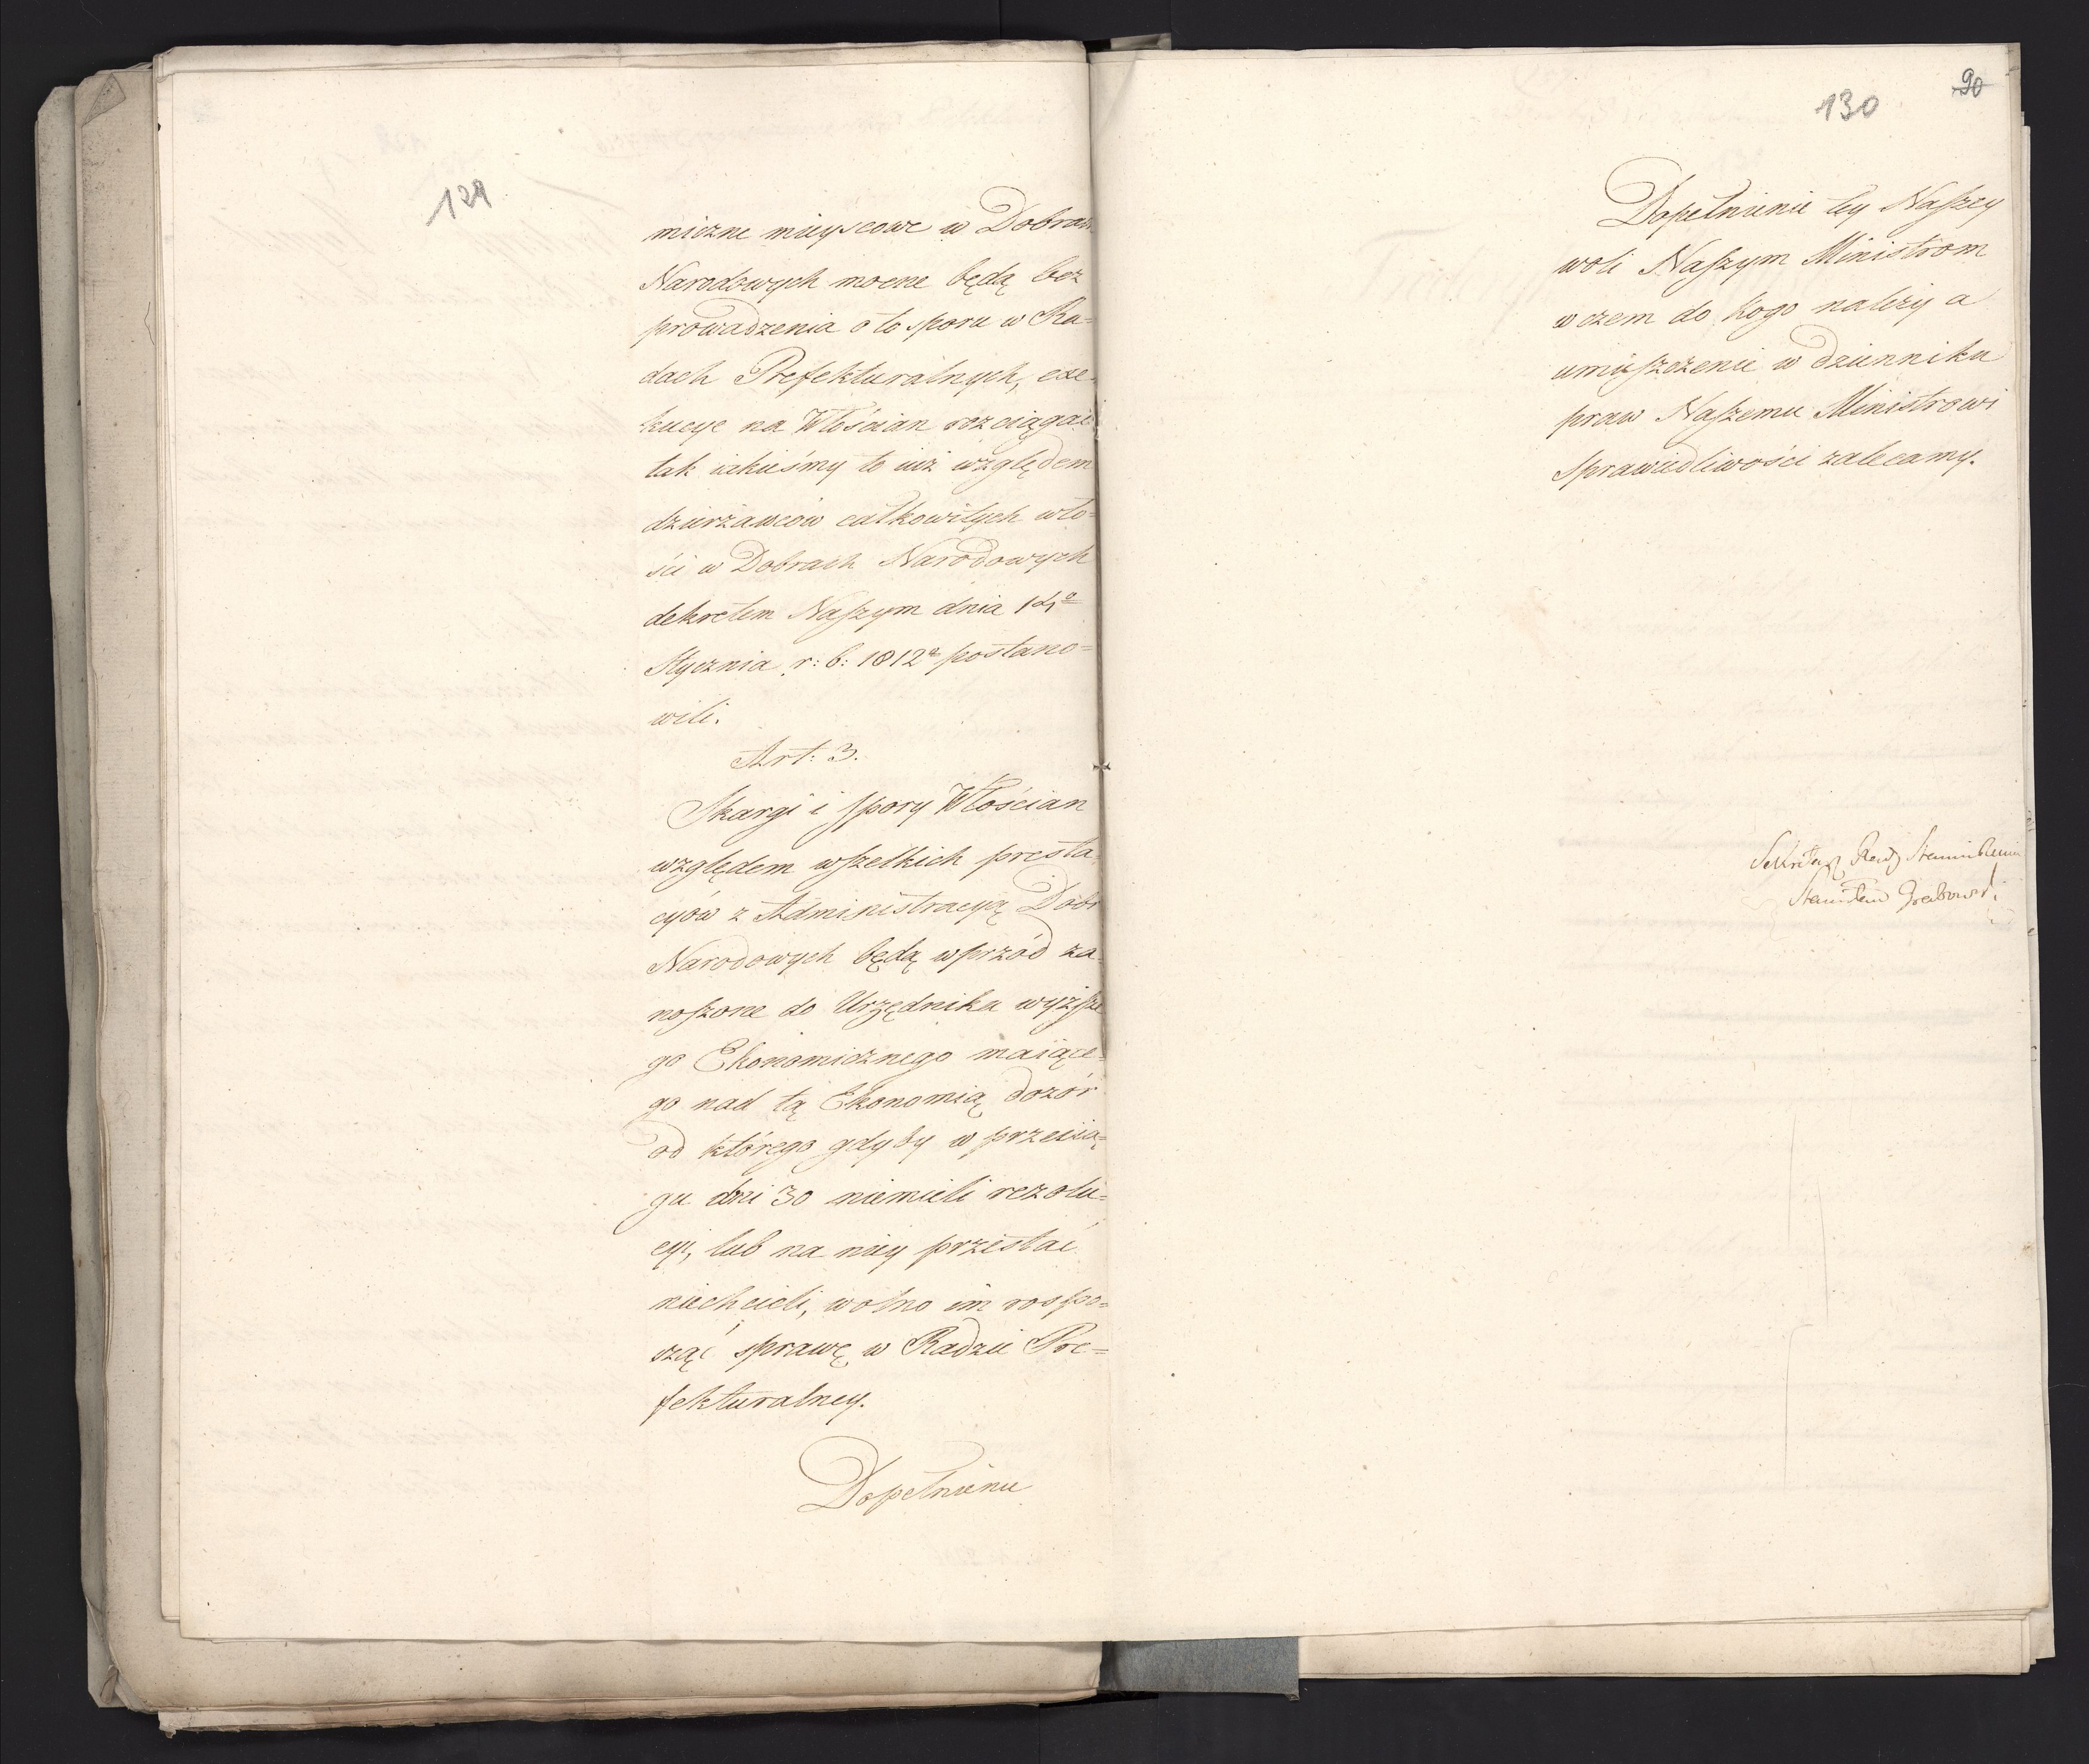 129
miczne mieyscowe w Dobrach
Narodowych mocne będą bez
prowadzenia o to sporu w Ra=
dach Prefekturalnych, exe=
kucye na Włościan rozciągać
tak iakieśmy to iuż względem
dzierżawców całkowitych wło=
ści w Dobrach Narodowych
dekretem Naszym dnia
Stycznia r: b: 1812 postano=
wili.
Art: 3.
Skargi i spory Włościan
względem wszelkich presta=
cyów z Administracyą Dobr
Narodowych będą wprzód za=
noszone do Urzędnika wyższe
go Ekonomicznego maiące=
go nad tą Ekonomią dozór
od którego gdyby w przecią=
gu dni 30 niemieli rezolu=
cyi, lub na niey przestać
niechcieli, wolno im rospo=
cząć sprawę w Radzie Pre=
fekturalney.
Dopełnienie
130
90
Dopełnienie tey Naszey
woli Naszym Ministrom
w czem do kogo należy a
umieszczenie w dzienniku
praw Naszemu Ministrowi
Sprawiedliwości zalecamy.
Sekretarz Rady
Stanisław Grabowski